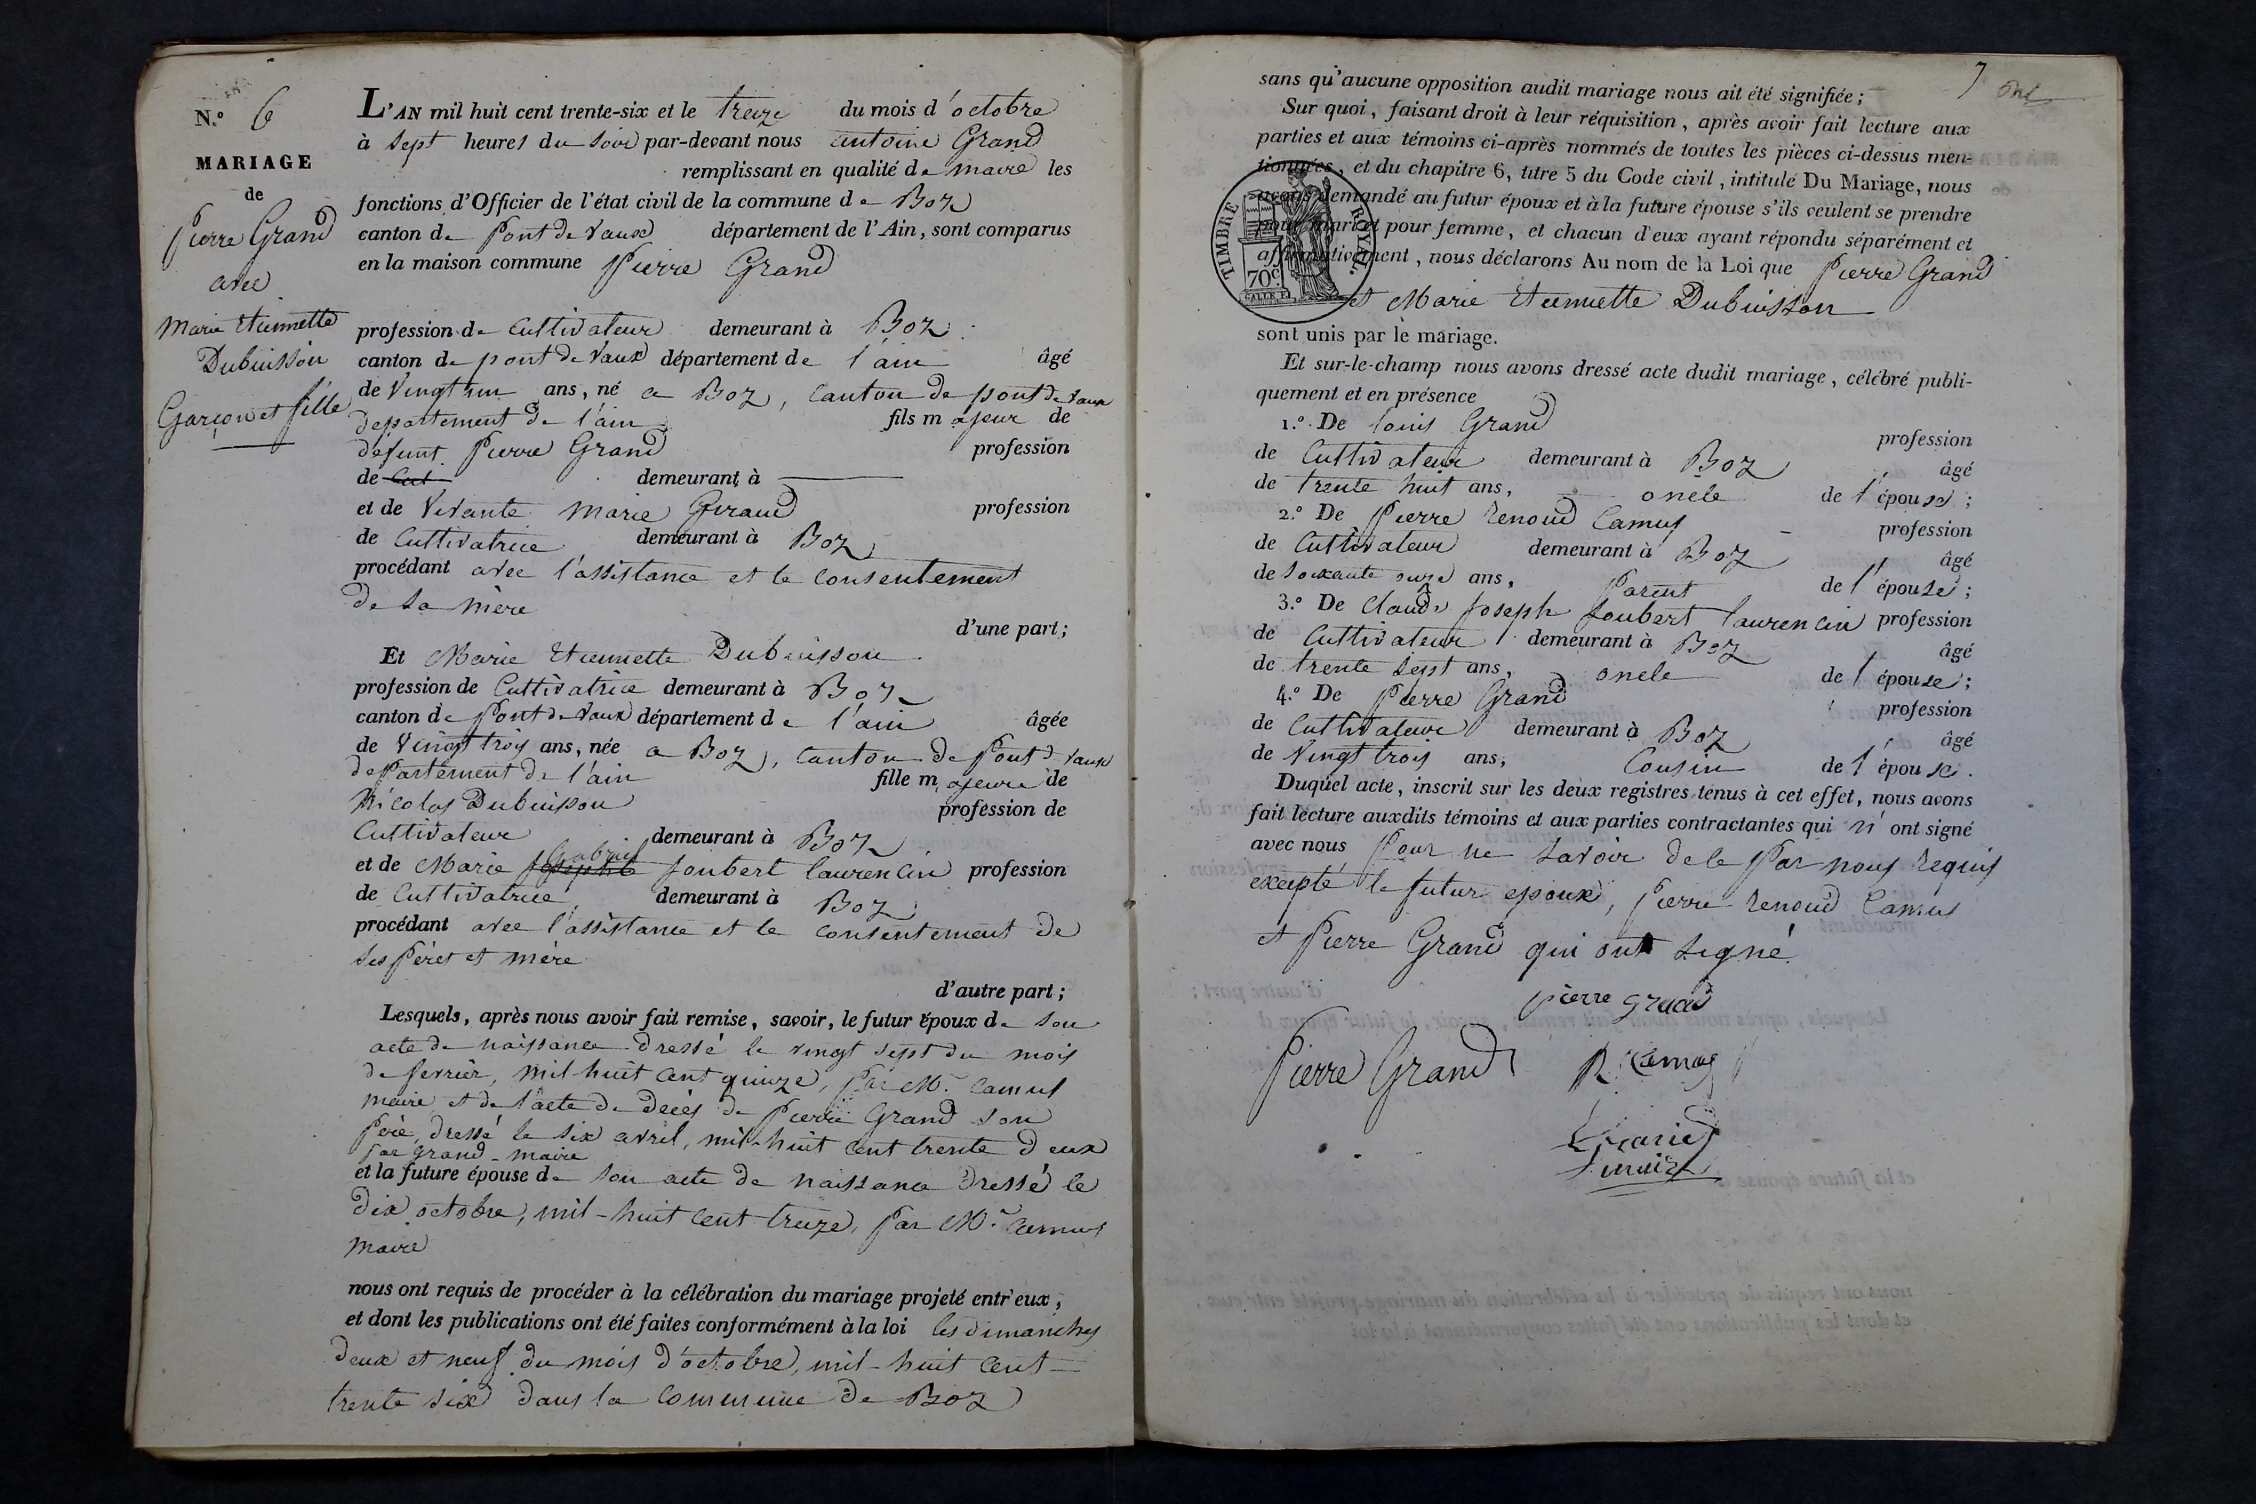 N.º 6
MARIAGE
de
Pierre Grand
avec
Marie Etiennette
Dubuisson
Garçon et fille
L'AN mil huit cent trente-six et le treize du mois d'octobre
à sept heures du soir par-devant nous antoine Grand
remplissant en qualité de maire les
fonctions d'Officier de l'état civil de la commune de Boz
canton de Pont de Vaux département de l'Ain, sont comparus
en la maison commune Pierre Grand
profession de Cultivateur demeurant à Boz
canton de pont de Vaux département de l'ain âgé
de Vingt un ans, né a Boz, canton de pont de Vaux
departement de l'ain fils majeur de
défunt Pierre Grand profession
de cul demeurant à
et de Vivante Marie Giraud profession
de Cultivatrice demeurant à Boz
procédant avec l'assistance et le consentement
de sa mère
d'une part;
Et Marie Etiennette Dubuisson
profession de Cultivatrice demeurant à Boz
canton de Pont de Vaux département de l'ain âgée
de Vingt trois ans, née a Boz, canton de Pont de Vaux
departement de l'ain fille majeure de
Nicolas Dubuisson profession de
Cultivateur demeurant à Boz
et de Marie Josephte Gabriel Joubert laurencin profession
de Cultivatrice demeurant à Boz
procédant avec l'assistance et le consentement de
ses Péret et mère
d'autre part;
Lesquels, après nous avoir fait remise, savoir, le futur époux de son
acte de naissance dressé le vingt sept du mois
de fevrier, mil-huit cent quinze, par Mr. Camus
maire et de l'acte de décès de Pierre Grand son
père, dressé le six avril, mil-huit cent trente deux
par grand-maire
et la future épouse de son acte de naissance dressé le
dix octobre, mil-huit cent treize, par Mr. camus
maire
nous ont requis de procéder à la célébration du mariage projeté entr'eux,
et dont les publications ont été faites conformément à la loi les dimanches
deux et neuf du mois d'octobre, mil-huit cent
trente six dans la commune de Boz
7
sans qu'aucune opposition audit mariage nous ait été signifiée;
Sur quoi, faisant droit à leur réquisition, après avoir fait lecture aux
parties et aux témoins ci-après nommés de toutes les pièces ci-dessus men-
tionnées, et du chapitre 6, titre 5 du Code civil, intitulé Du Mariage, nous
avons demandé au futur époux et à la future épouse s'ils veulent se prendre
pour mari et pour femme, et chacun d'eux ayant répondu séparément et
affirmativement, nous déclarons Au nom de la Loi que Pierre Grand
et Marie Etiennette Dubuisson
TIMBRE ROYAL.
70c.
sont unis par le mariage.
Et sur-le-champ nous avons dressé acte dudit mariage, célébré publi-
quement et en présence
1.º De louis Grand profession
de Cultivateur demeurant à Boz âgé
de trente huit ans, oncle de l'épouse;
2.º De Pierre Renoud Camus profession
de Cultivateur demeurant à Boz âgé
de soixante onze ans, Parent de l'épouse;
3.º De Claude Joseph Joubert laurencin profession
de Cultivateur demeurant à Boz âgé
de trente sept ans, oncle de l'épouse;
4.º De Pierre Grand profession
de Cultivateur demeurant à Boz âgé
de Vingt trois ans, Cousin de l'épouse.
Duquel acte, inscrit sur les deux registres tenus à cet effet, nous avons
fait lecture auxdits témoins et aux parties contractantes qui n'ont signé
avec nous Pour ne savoir de le Par nous requis
excepté le futur epoux, Pierre Renoud Camus
et Pierre Grand qui ont signé
pierre grand
Pierre Grand R Camus